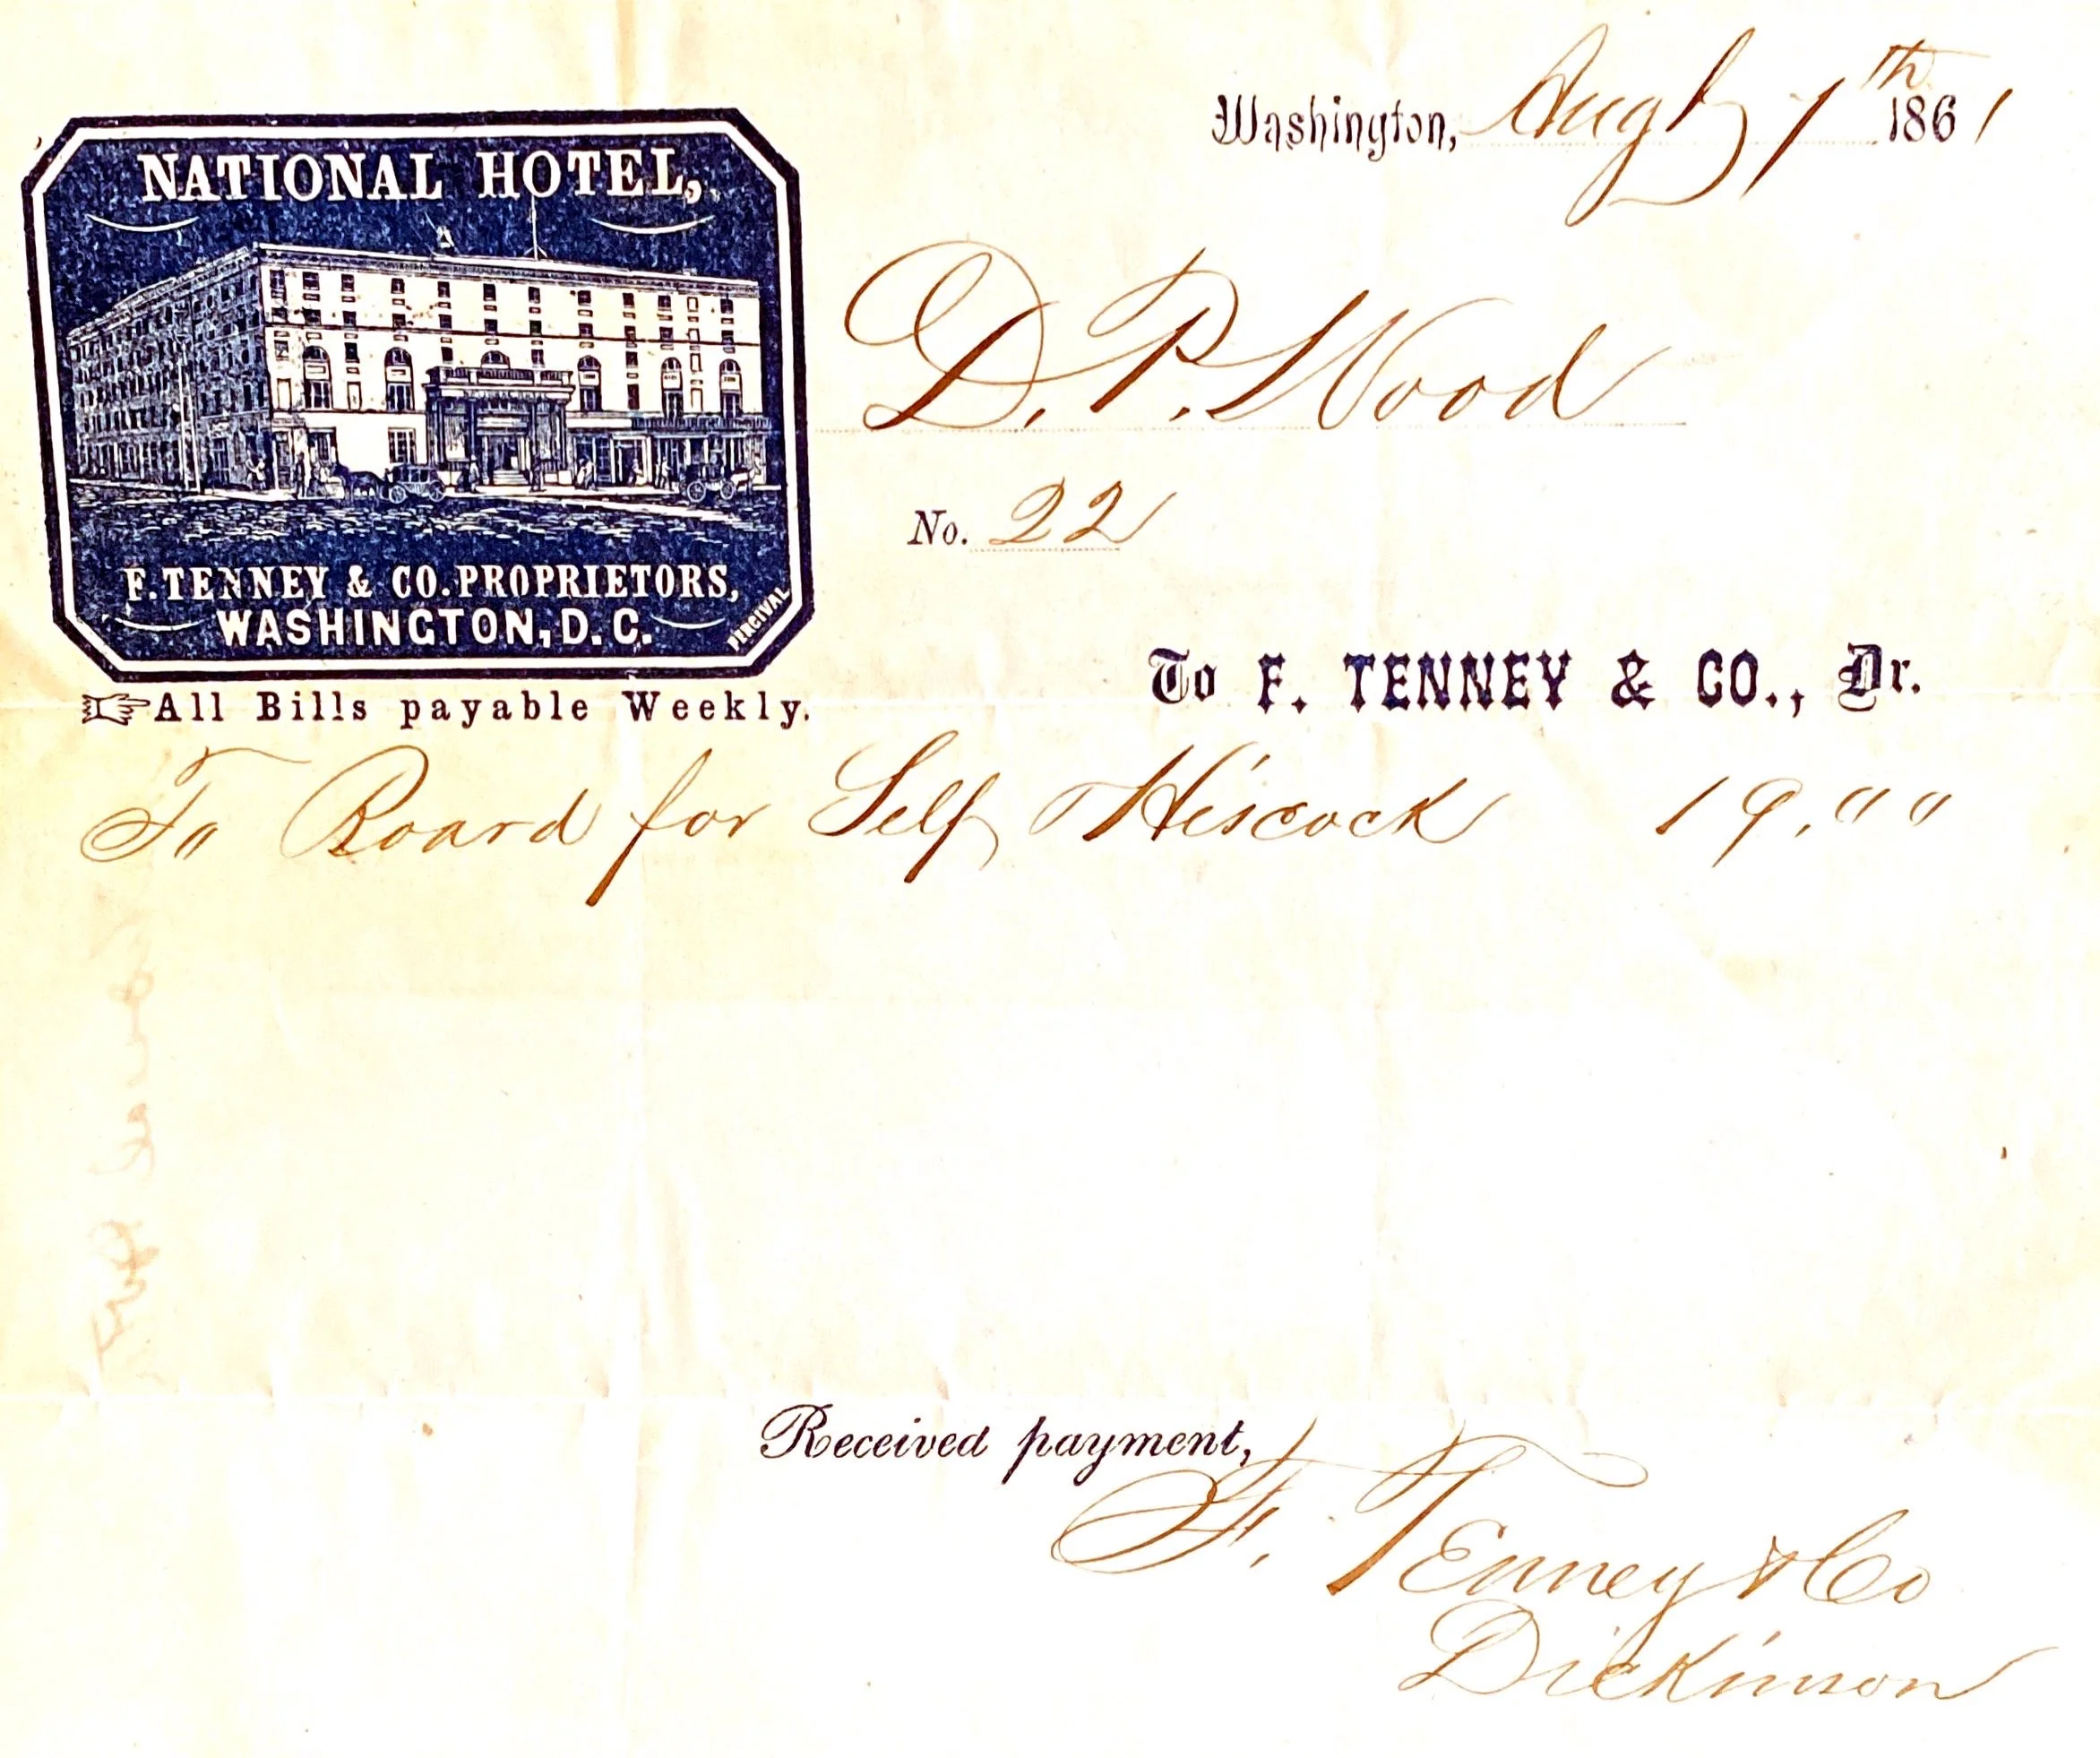 NATIONAL HOTEL,
F. TENNEY & CO. PROPRIETORS,
WASHINGTON, D. C.
PERCIVAL
☞ All Bills payable Weekly.
Washington, Aug 1861
D. P. Wood
No. 22
To F. TENNEY & CO., Dr.
To Board for Self Hiscock 19. " "
Received payment,
F. Tenney & Co
Dickinson